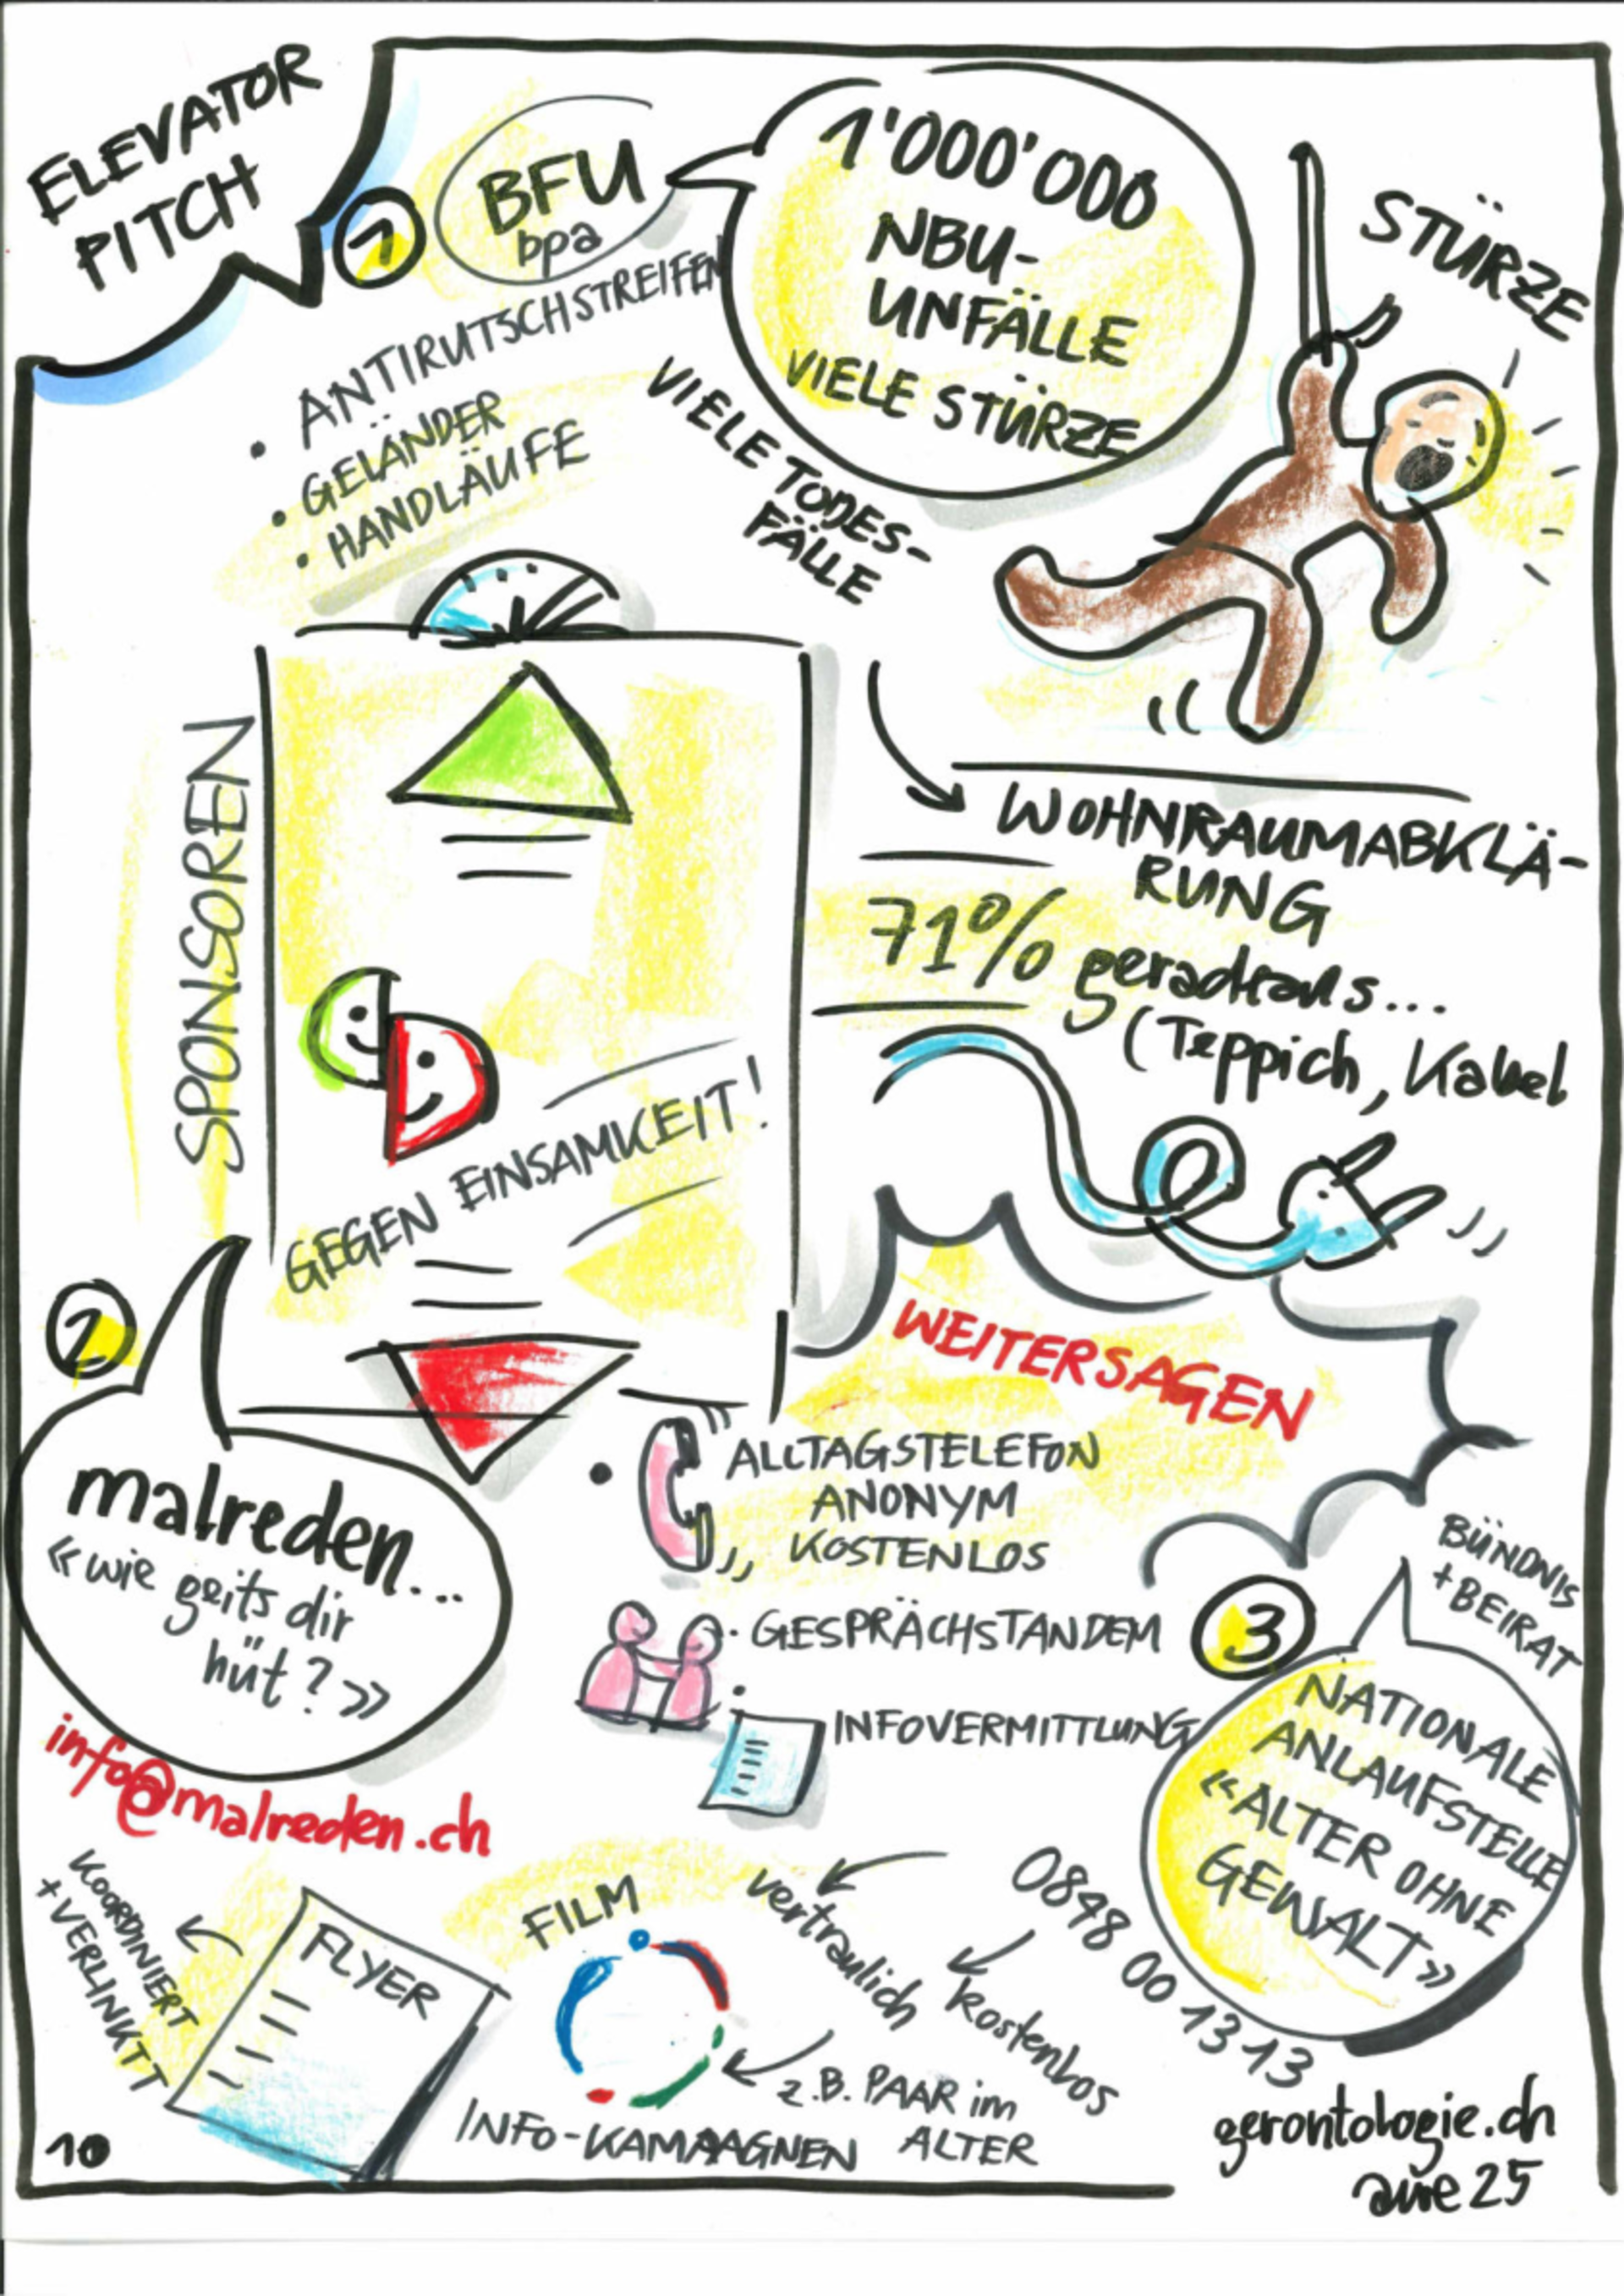 ELEVATOR
PITCH
1
BFU
bpa
1'000'000
NBU-
UNFÄLLE
VIELE STÜRZE
STÜRZE
• ANTIRUTSCHSTREIFEN
• GELÄNDER
• HANDLÄUFE
VIELE TODES-
FÄLLE
SPONSOREN
WOHNRAUMABKLÄ-
RUNG
71% geradeaus...
(Teppich, Kabel
GEGEN EINSAMKEIT!
2
malreden...
«wie geits dir
hüt?»
info@malreden.ch
WEITERSAGEN
• ALLTAGSTELEFON
ANONYM
KOSTENLOS
• GESPRÄCHSTANDEM
• INFOVERMITTLUNG
3
BÜNDNIS
+ BEIRAT
NATIONALE
ANLAUFSTELLE
«ALTER OHNE
GEWALT»
0848 00 13 13
vertraulich
kostenlos
KOORDINIERT
+ VERLINKT
FLYER
FILM
z.B. PAAR im
ALTER
INFO-KAMPAGNEN
10
gerontologie.ch